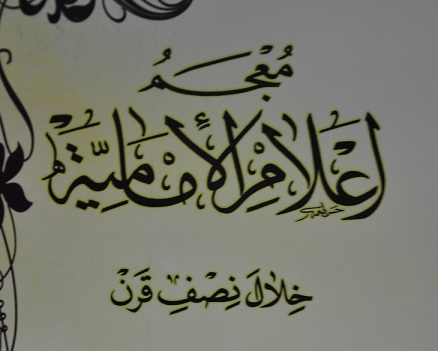 مُعْجَمُ
اِعْلَامِ الْإِمَامِيَّةِ
خِلَالَ نِصْفِ قَرْنٍ